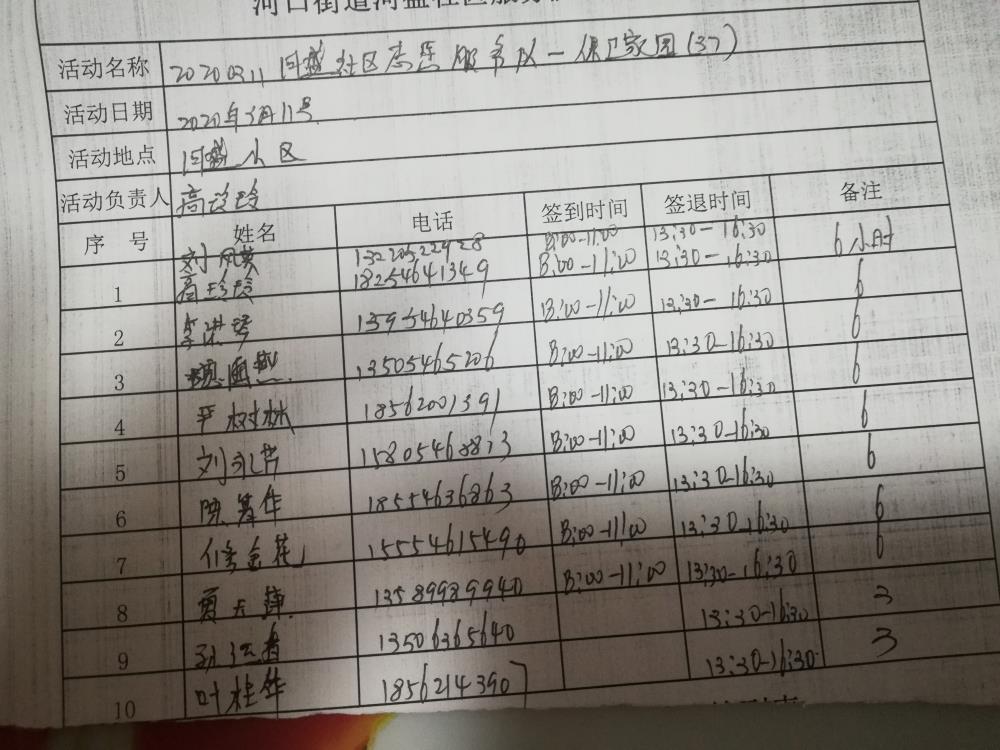 河口街道河盛社区服务
活动名称 20200311 河盛社区志愿服务队一保卫家园(37)
活动日期 2020年3月11号
活动地点 河盛小区
活动负责人 高
序号 姓名 电话 签到时间 签退时间 备注
刘凤英 13220522928 8:00-11:00 13:30-16:30 6小时
1 高 18254641349 8:00-11:00 13:30-16:30 6
2 李 13954640359 8:00-11:00 13:30-16:30 6
3 13505465206 8:00-11:00 13:30-16:30 6
4 严树林 18562001391 8:00-11:00 13:30-16:30 6
5 刘永芹 15805468813 8:00-11:00 13:30-16:30 6
6 陈华 18554636863 8:00-11:00 13:30-16:30 6
7 修金花 15554615490 8:00-11:00 13:30-16:30 6
8 贾 13589989940 8:00-11:00 13:30-16:30 3
9 孙 13506365640 13:30-16:30 3
10 叶桂华 1856214390 13:30-16:30